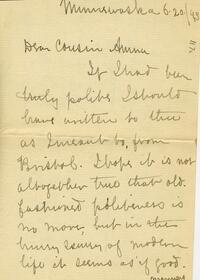 Minnewaska 6.20/93
Dear Cousin Anna
If I had been
truly polite I should
have written to thee
as I meant to, from
Bristol. I hope it is not
altogether true that old
fashioned politeness is
no more, but in the
hurry scurry of modern
life it seems as if good.
manners